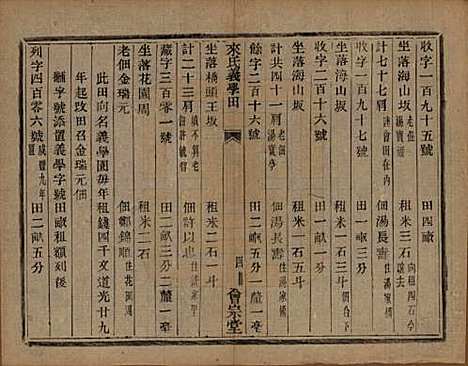 收字一百九十五號　田四畝
坐落海山坂　老佃湯寶　租米三石　向租四石今讓去
計七十七則　清會田在內　佃湯長壽　住湯家橋
收字一百九十七號　田一畝三分
坐落海山坂　租米一石五斗
收字二百十六號　田一畝一分
計共四十一則　湯寶　佃湯長壽　住湯家橋
餘字二百十六號　田二畝五分一釐一毫
坐落海山坂
來氏義學田　四　會宗堂
坐落橋頭王坂　租米二石一斗
計二十三則　佃許以也　住
藏字三百零一號　田二畝三分二釐一毫
坐落花園周　租米二石
老佃金瑞元　佃鄭錦順　住花園周
此田向名義學園每年租錢四千文道光廿九
年起改田召金瑞元佃
續字號添置義學字號田畝租額列後
列字四百零六號　咸豐九年　田二畝五分